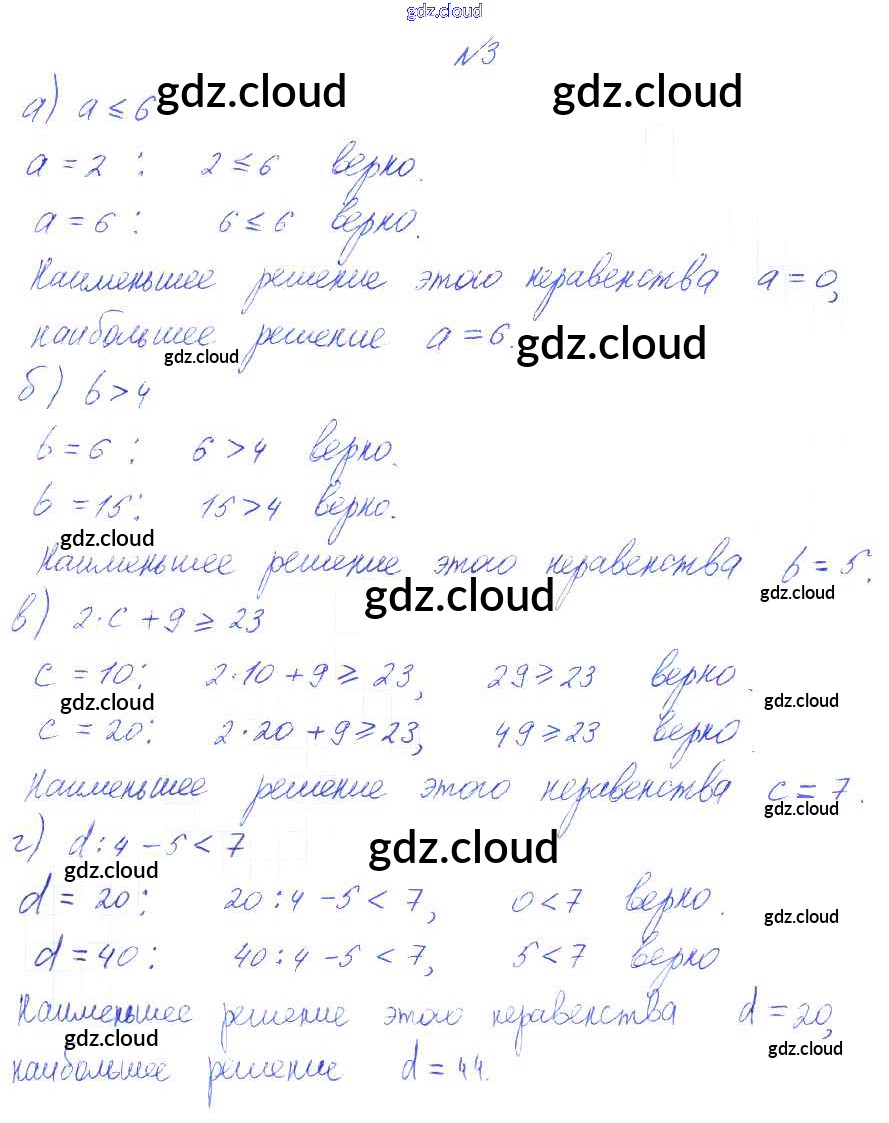 gdz.cloud
№3
gdz.cloud gdz.cloud
а) a ≤ 6
a = 2 : 2 ≤ 6 верно.
a = 6 : 6 ≤ 6 верно.
Наименьшее решение этого неравенства a = 0,
наибольшее решение a = 6.
gdz.cloud gdz.cloud
б) b > 4
b = 6 : 6 > 4 верно.
b = 15 : 15 > 4 верно.
gdz.cloud
Наименьшее решение этого неравенства b = 5.
gdz.cloud gdz.cloud
в) 2·c + 9 ≥ 23
c = 10 : 2·10 + 9 ≥ 23, 29 ≥ 23 верно.
gdz.cloud gdz.cloud
c = 20 : 2·20 + 9 ≥ 23, 49 ≥ 23 верно.
Наименьшее решение этого неравенства c = 7.
gdz.cloud
г) d : 4 - 5 < 7
gdz.cloud
gdz.cloud
d = 20 : 20 : 4 - 5 < 7, 0 < 7 верно.
gdz.cloud
d = 40 : 40 : 4 - 5 < 7, 5 < 7 верно
Наименьшее решение этого неравенства d = 20,
gdz.cloud gdz.cloud
наибольшее решение d = 44.